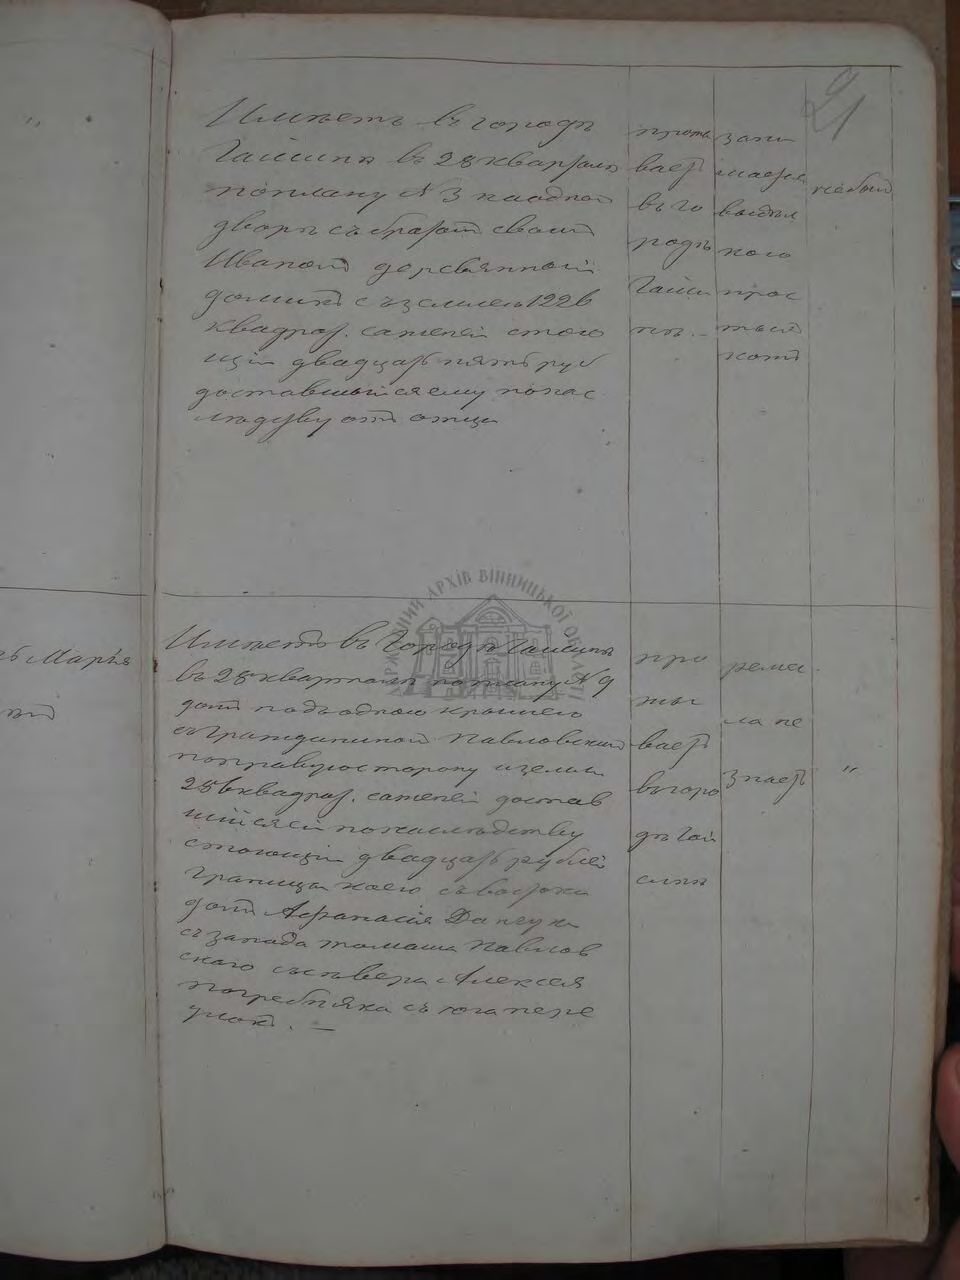 21
Имѣетъ въ городѣ
Гайсинѣ въ 28 кварталѣ
по плану N 3 на одной
дворѣ съ братом своим
Иваном деревянной
домикъ съ землею 1226
квадрат. саженей стою
щій двадцать пять руб
доставшийся ему по нас
лѣдству отъ отца
прожи
ваетъ
въ го
родѣ
Гайси
нѣ
зани
мается
выдѣл
кою
прос
тыхъ
Имѣетъ въ Городѣ Гайсинѣ
въ 28 кварталѣ по плану N 9
дом подъ одною крышею
съ гражданиной Павловским
по правую сторону и земли
256 квадрат. саженей достав
шійся ей по наслѣдству
стоющій двадцать рублей
граница коего съ востока
дом Афанасія
съ запада Томаша Павлов
скаго съ сѣвера Алексея
Погребняка съ юга пере
улокъ. —
про
жы
ваетъ
въ горо
дѣ Гай
синѣ
ремес
ла не
знаетъ
"
"
Марія